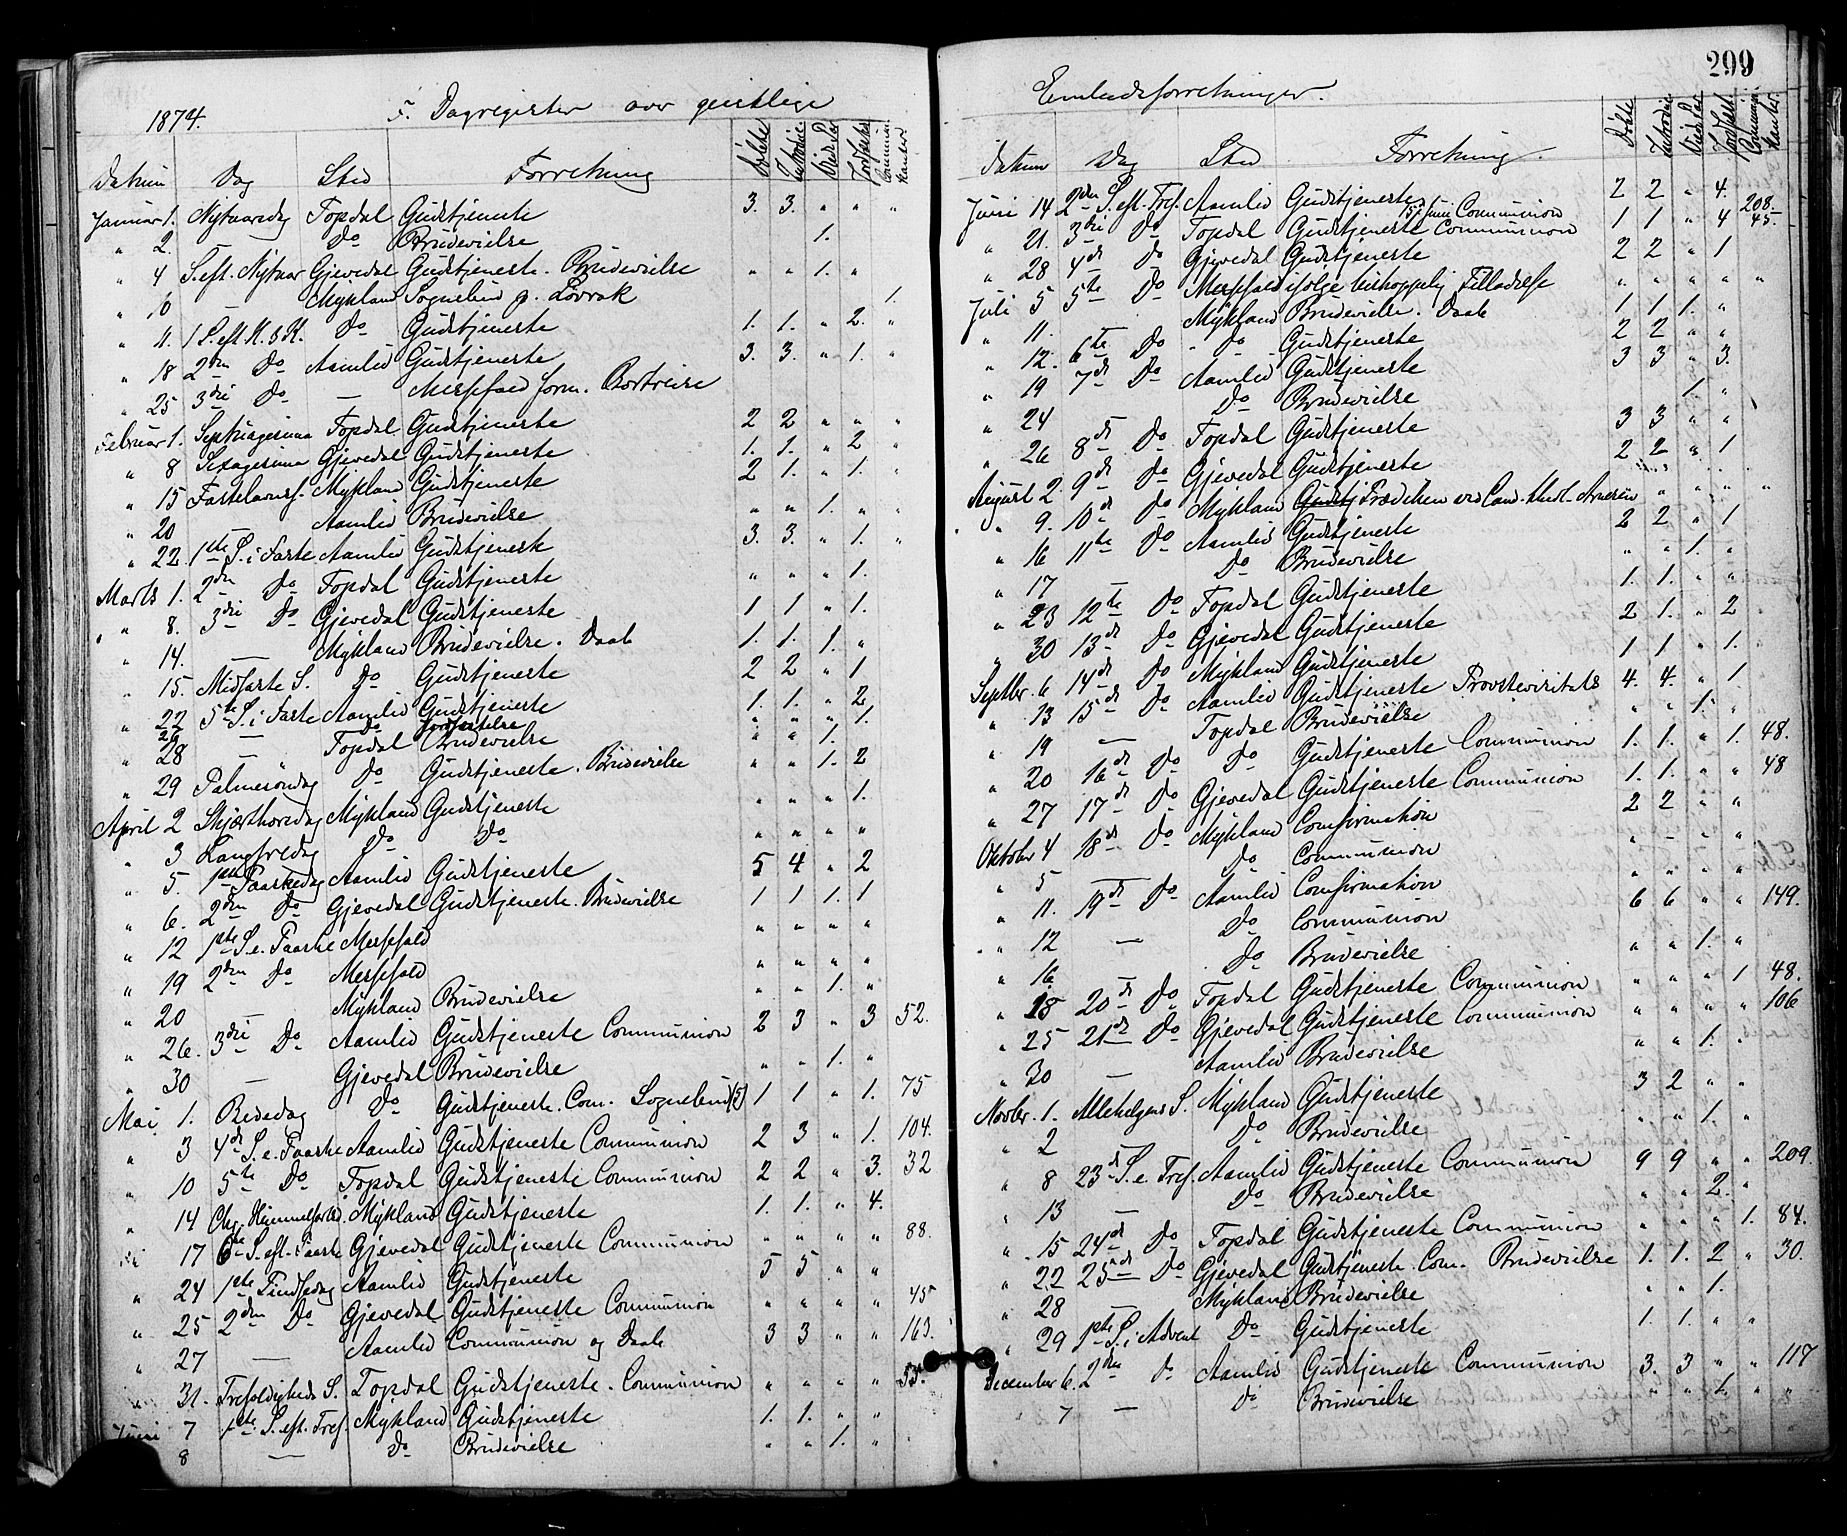 1874. F. Dagregister over geistlige
Datum Dag Sted Forretning Døbte Introd. Vied. Par Jordfæstede Communikanter
Januar 1. Nytaarsdag Topdal Gudstjeneste 3. 3. " " "
" 2. Do Brudevielse 1.
" 4 S. eft. Nytaar Gjevedal Gudstjeneste. Brudevielse " " 1. "
" 10 — Mykland Sognebud p. Løvrak 1.
" 11. 1 S. eft. H. 3 K. Do Gudstjeneste 1. 1. " 2. "
" 18 2den Do Aamlid Gudstjeneste 3. 3. " 1. "
" 25 3die Do — Messefald Bortreise
Februar 1. Septuagesima Topdal Gudstjeneste 2 2 " " "
" 8 Sexagesima Gjevedal Gudstjeneste 1. 1. " 2 "
" 15 Fastelavnss. Mykland Gudstjeneste 2 1. " 1. "
" 20 Aamlid Brudevielse " " 1. " "
" 22 1ste S. i Faste Aamlid Gudstjeneste 3. 3. " 1. "
Marts 1. 2den Do Topdal Gudstjeneste " " " 1.
" 8. 3die Do Gjevedal Gudstjeneste 1 1 " 1.
" 14. — Mykland Brudevielse. Daab 1. 1. 1. "
" 15. Midfaste S. Do Gudstjeneste 2 2 " 1
" 22 5te S. i Faste Aamlid Gudstjeneste 1. 1. " 2
" Do Jordfæstelse " " " 1.
" 28 — Topdal Brudevielse " " 1.
" 29 Palmesöndag Do Gudstjeneste. Brudevielse " " 1. 2
April 2 Skjærthorsdag Mykland Gudstjeneste " " " 1.
" 3 Langfredag Do Do " " " "
" 5. 1ste Paaskedag Aamlid Gudstjeneste 5 4 " 2
" 6. 2den Do Gjevedal Gudstjeneste. Brudevielse 1 1 1. 1
" 12 1ste S. e. Paaske Messefald " " " "
" 19 2den Do Messefald " " " "
" 20 — Mykland Brudevielse " " 1. "
" 26. 3die Do Aamlid Gudstjeneste Communion 2 3 " 3 52.
" 30 — Gjevedal Brudevielse " " 1. "
Mai 1. Bededag Do Gudstjeneste. Com. Sognebud (5) 1 1 " 1. 75
" 3 4de S. e. Paaske Aamlid Gudstjeneste Communion 2 3 " 1. 104.
" 10 5te Do Topdal Gudstjeneste Communion 2 2 " 3. 32
" 14 Chr. Himmelfartsd. Mykland Gudstjeneste 1. 1. " 4.
" 17 6te S. eft. Paaske Gjevedal Gudstjeneste Communion " " " " 88.
" 24 1ste Pindsedag Aamlid Gudstjeneste 5 5 " "
" 25 2den Do Gjevedal Gudstjeneste Communion " " " " 45
" 27 — Aamlid Communion og Daab 3 3 " " 163.
" 31. Trefoldigheds S. Topdal Gudstjeneste. Communion " " " "
Juni 7 1ste S. eft. Tref. Mykland Gudstjeneste 1. 1. " "
8 — Do Brudevielse " " 1. "
299
Embedsforretninger.
Datum Dag Sted Forretning. Døbte Introd. Vied. Par Jordfæst. Communikanter
Juni 14 2den S. eft. Tref. Aamlid Gudstjeneste 15de Juni Communion 2 2 " 4. 208.
" 21. 3die Do Topdal Gudstjeneste Communion 1 1 " 4 45.
" 28 4de Do Gjevedal Gudstjeneste 2 2 " 1
Juli 5 5te Do Messefald ifølge biskoppelig Tilladelse " " " " "
" 11. Mykland Brudevielse. Daab 1 1 1. "
" 12. 6te Do Do Gudstjeneste 2 2 " "
" 19 7de Do Aamlid Gudstjeneste 3 3 " 3.
" 24 Do Brudevielse 1. "
" 26 8de Do Topdal Gudstjeneste 3 3 " "
August 2. 9de Do Gjevedal Gudstjeneste 2 2 " 1
" 9. 10de Do Mykland Gudstj Præd. ved Cand. theol. Arnesen " " " "
" 16 11te Do Aamlid Gudstjeneste 2 2 " 1
" 17 — Do Brudevielse " " 1. "
" 23 12te Do Topdal Gudstjeneste 1. 1. " "
" 30 13de Do Gjevedal Gudstjeneste 2 1. " 2
Septbr. 6 14de Do Mykland Gudstjeneste 1 1 " 1.
" 13 15de Do Aamlid Gudstjeneste Provstevisitats 4. 4. " 1
" 19 — Topdal Brudevielse " " 1. "
" 20 16de Do Do Gudstjeneste Communion 1. 1. " 1. 48.
" 27 17de Do Gjevedal Gudstjeneste Communion 1. 1. " " 48
Oktober 4 18de Do Mykland Confirmation 2 2 " "
" 5 Do Communion " " " "
" 11. 19de Do Aamlid Confirmation " " " "
" 12 — Do Communion 6 6 " " 149.
" 16 — Do Brudevielse " " 1. "
" 18 20de Do Topdal Gudstjeneste Communion " " " 1 48.
" 25 21de Do Gjevedal Gudstjeneste Communion " " " " 106
" 30 — Aamlid Brudevielse " " 1. "
Novbr. 1. Allehelgens S. Mykland Gudstjeneste 3 2 " "
" 2 Do Brudevielse " " 1. "
" 8 23de S. e. Tref. Aamlid Gudstjeneste Communion 9 9 " " 209.
" 13 — Do Brudevielse " " 2. "
" 15 24de Do Topdal Gudstjeneste Communion " " " 1. 84.
" 22 25de Do Gjevedal Gudstjeneste. Com. Brudevielse 1. 1. 2 " 30.
" 28 — Mykland Brudevielse " " 1.
" 29 1ste S. i Advent Do Gudstjeneste 1. 1. " "
December 6. 2den Do Aamlid Gudstjeneste Communion 3. 3 " " 117
" 7 — Do Brudevielse " " 1. " "